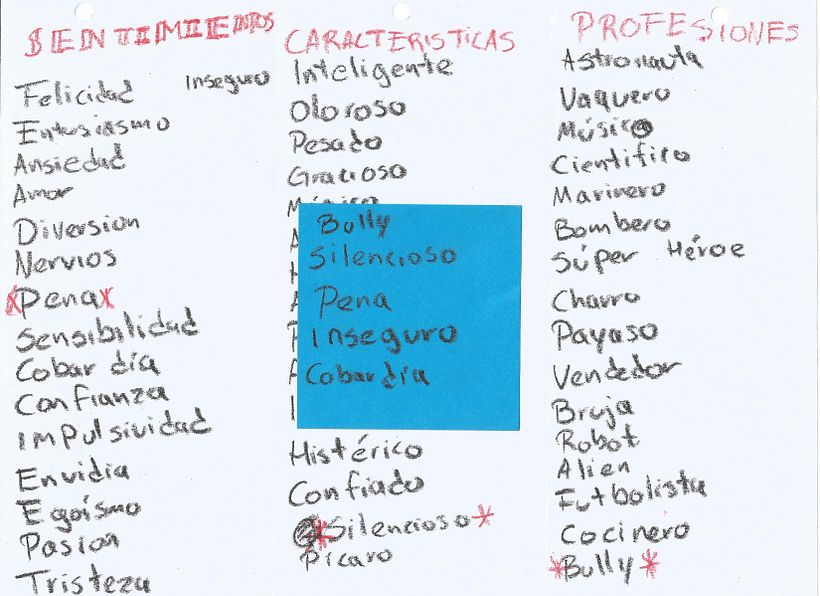 SENTIMIENTOS
Inseguro
Felicidad
Entusiasmo
Ansiedad
Amor
Diversion
Nervios
*Pena*
Sensibilidad
Cobardía
Confianza
Impulsividad
Envidia
Egoísmo
Pasion
Tristeza
CARACTERISTICAS
Inteligente
Oloroso
Pesado
Gracioso
Bully
Silencioso
Pena
Inseguro
Cobardía
Histérico
Confiado
*Silencioso*
Pícaro
PROFESIONES
Astronauta
Vaquero
Músico
Cientifico
Marinero
Bombero
Súper Héroe
Charro
Payaso
Vendedor
Bruja
Robot
Alien
Futbolista
Cocinero
*Bully*